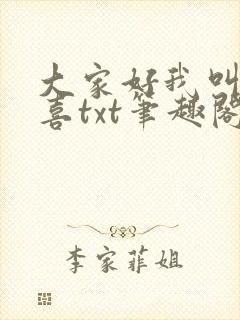 大家好我叫
喜txt笔趣阁
李家菲姐